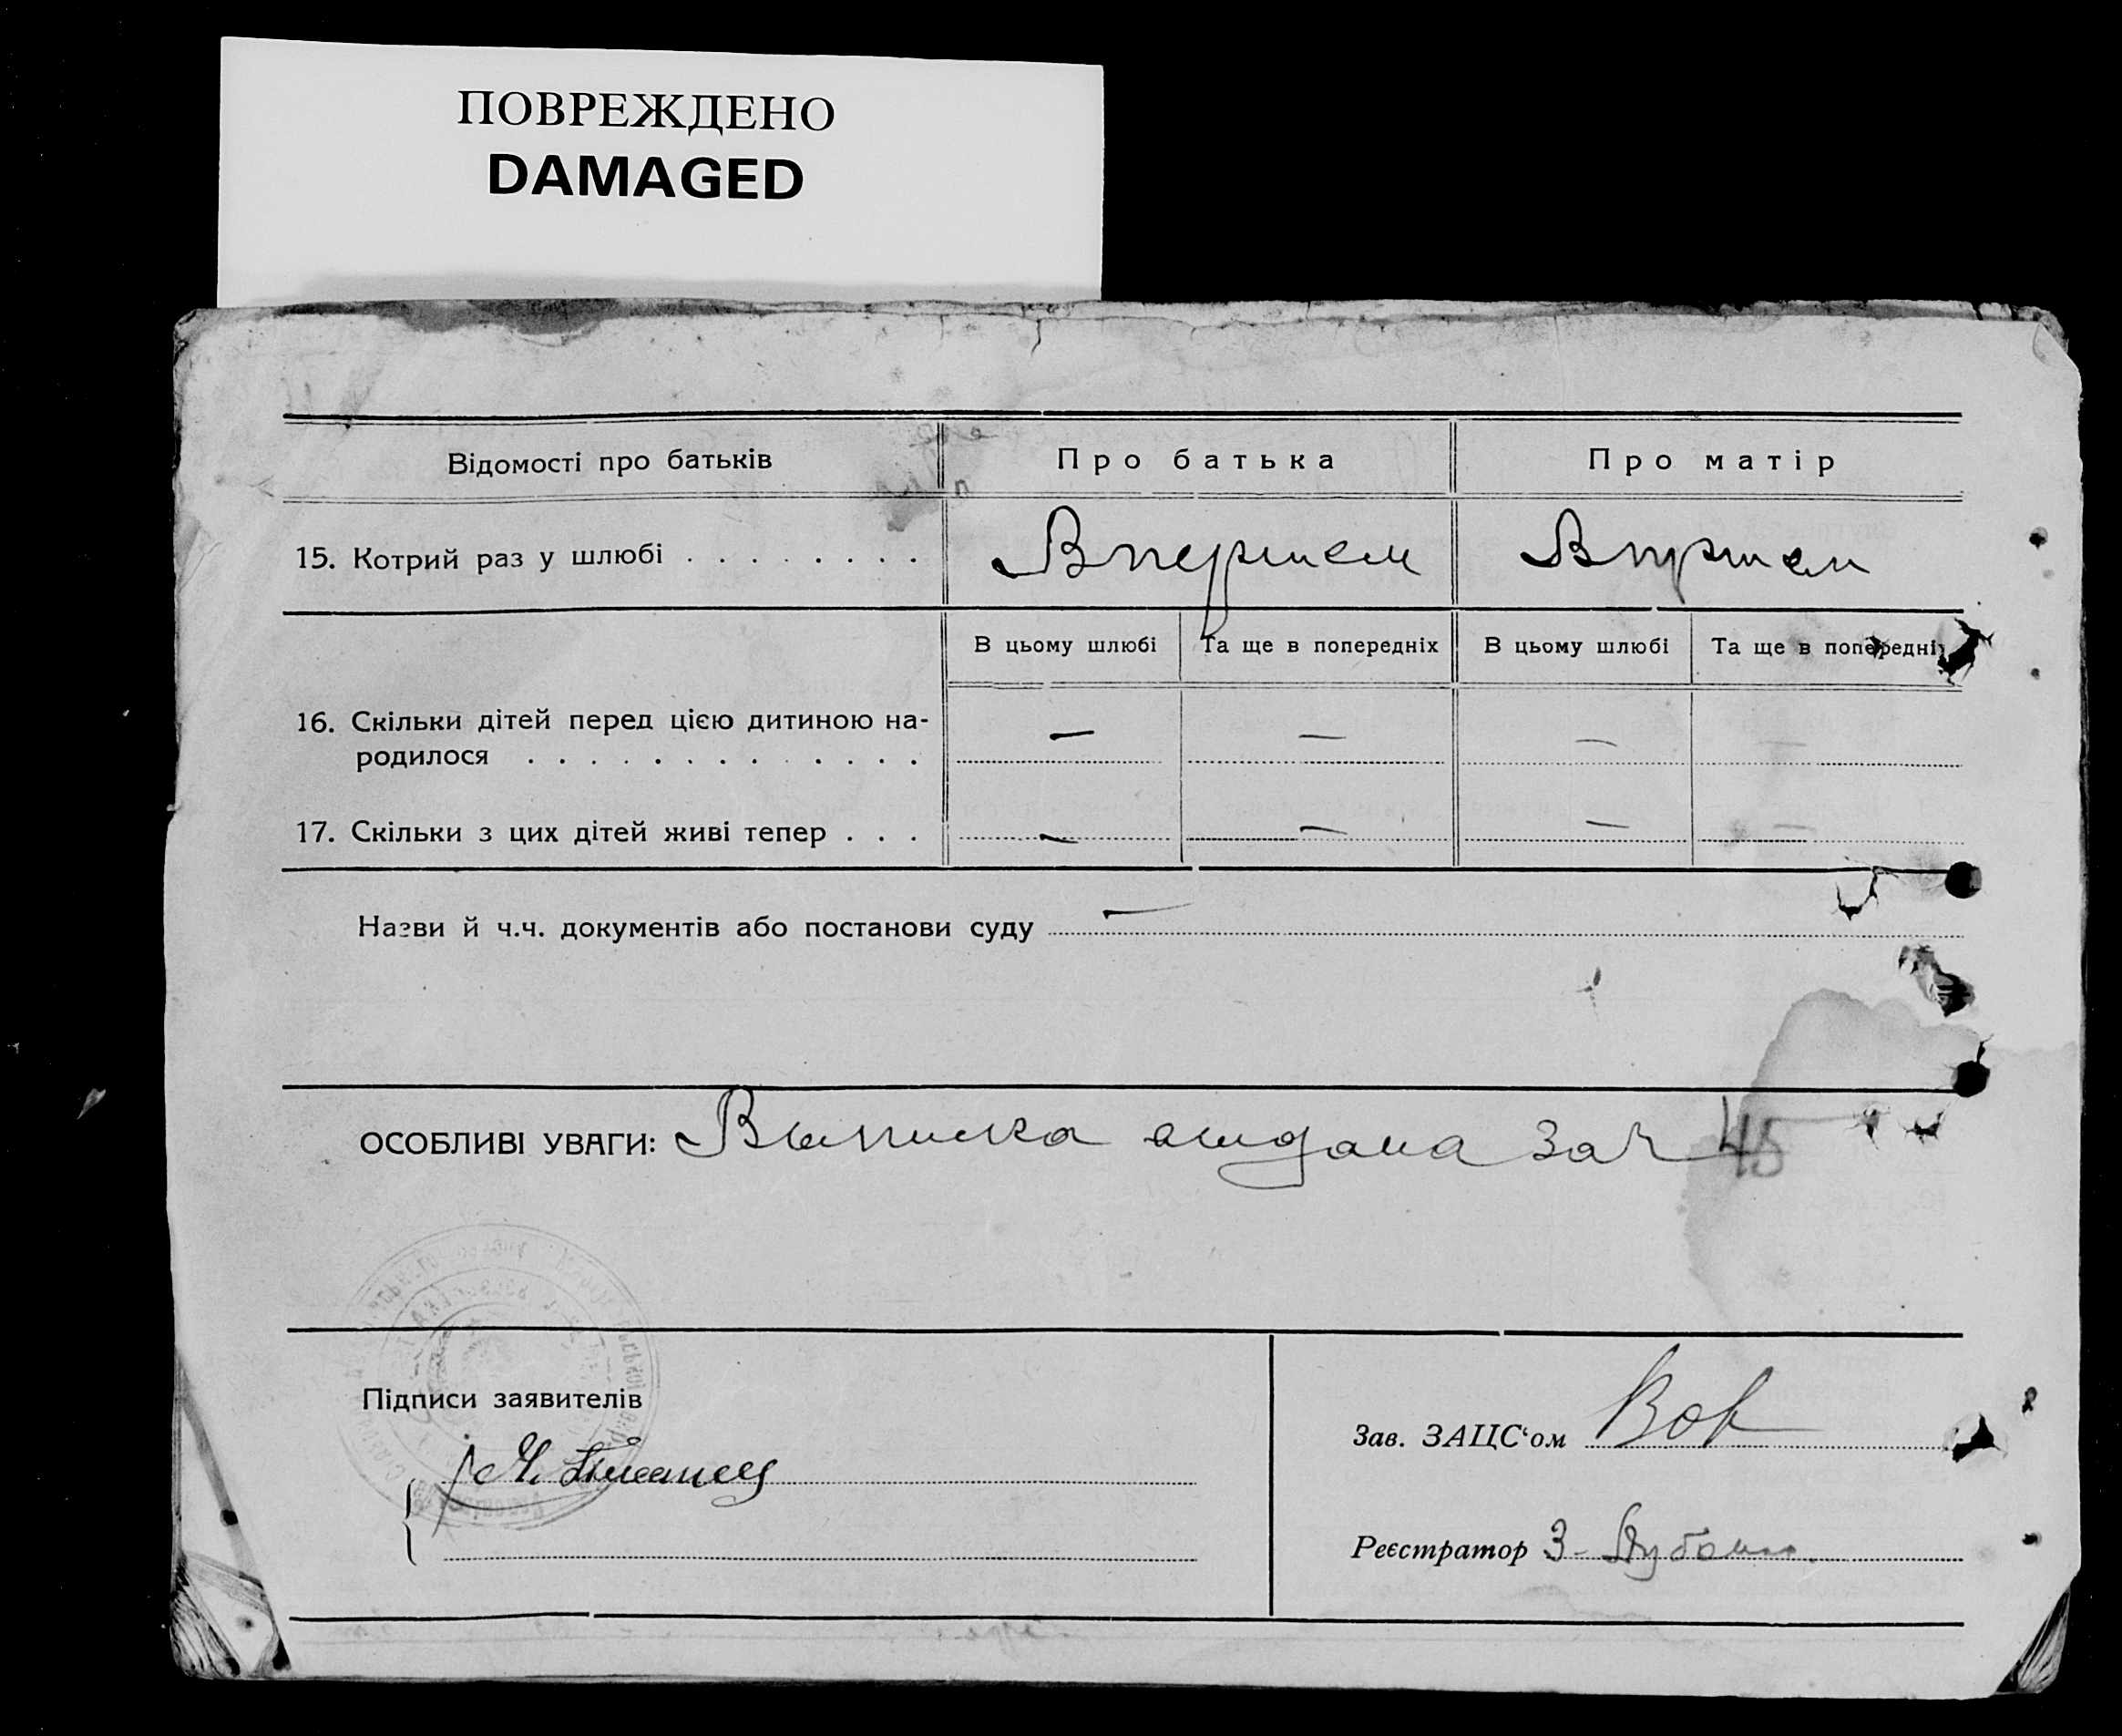 ПОВРЕЖДЕНО
DAMAGED
Відомості про батьків
Про батька
Про матір
15. Котрий раз у шлюбі . . . . . . . .
Впершем
Впршем
В цьому шлюбі
Та ще в попередніх
В цьому шлюбі
Та ще в попередні
16. Скільки дітей перед цією дитиною на-
родилося . . . . . . . . . . . . .
— — — —
17. Скільки з цих дітей живі тепер . . .
— — — —
Назви й ч.ч. документів або постанови суду —
ОСОБЛИВІ УВАГИ: Выписка выдана за № 45
Підписи заявителів
Зав. ЗАЦС‘ом Вов
Реєстратор З-